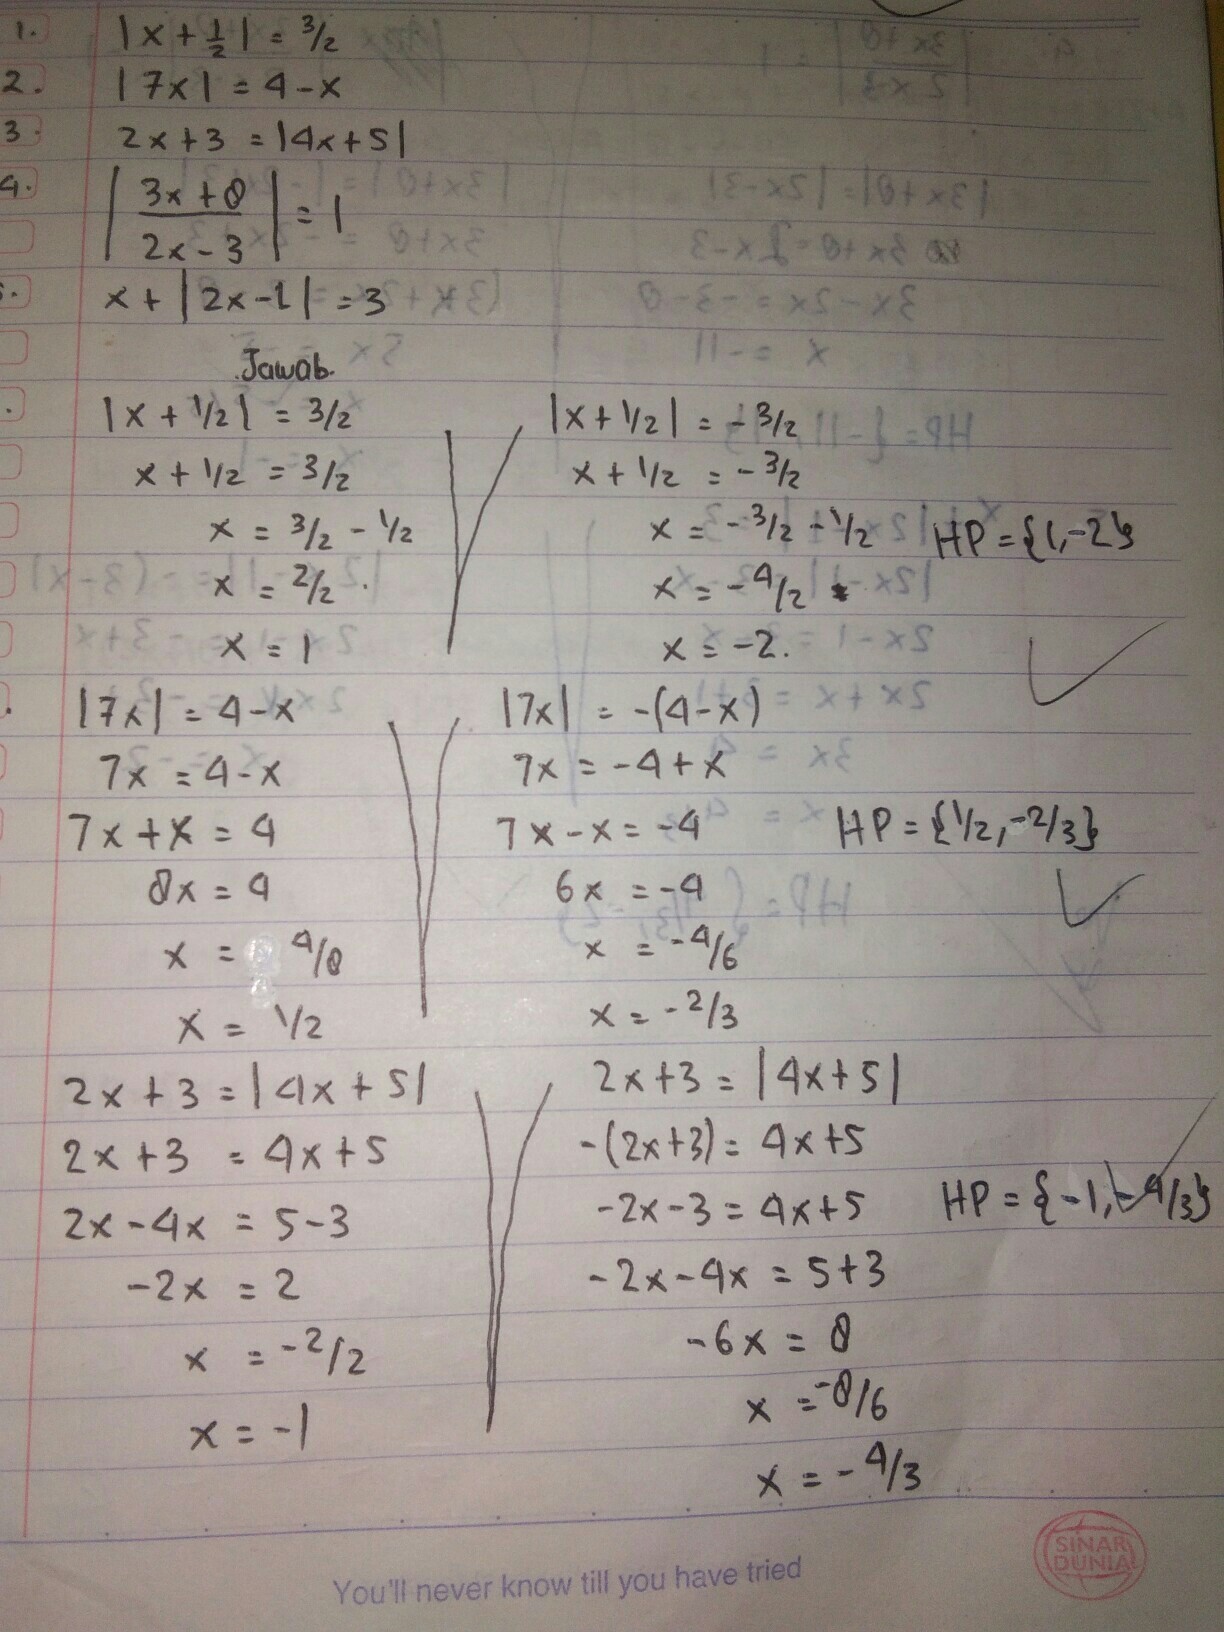 1. |x + 1/2| = 3/2
2. |7x| = 4 - x
3. 2x + 3 = |4x + 5|
4. |(3x + 8)/(2x - 3)| = 1
x + |2x - 1| = 3
Jawab.
|x + 1/2| = 3/2 |x + 1/2| = - 3/2
x + 1/2 = 3/2 x + 1/2 = - 3/2
x = 3/2 - 1/2 x = - 3/2 - 1/2 HP = {1, -2}
x = 2/2 . x = - 4/2
x = 1 x = -2.
|7x| = 4 - x |7x| = -(4 - x)
7x = 4 - x 7x = -4 + x
7x + x = 4 7x - x = -4 HP = {1/2, -2/3}
8x = 4 6x = -4
x = 4/8 x = -4/6
x = 1/2 x = -2/3
2x + 3 = |4x + 5| 2x + 3 = |4x + 5|
2x + 3 = 4x + 5 -(2x + 3) = 4x + 5
2x - 4x = 5 - 3 -2x - 3 = 4x + 5 HP = {-1, -4/3}
-2x = 2 -2x - 4x = 5 + 3
x = -2/2 -6x = 8
x = -1 x = -8/6
x = -4/3
You'll never know till you have tried
SINAR
DUNIA